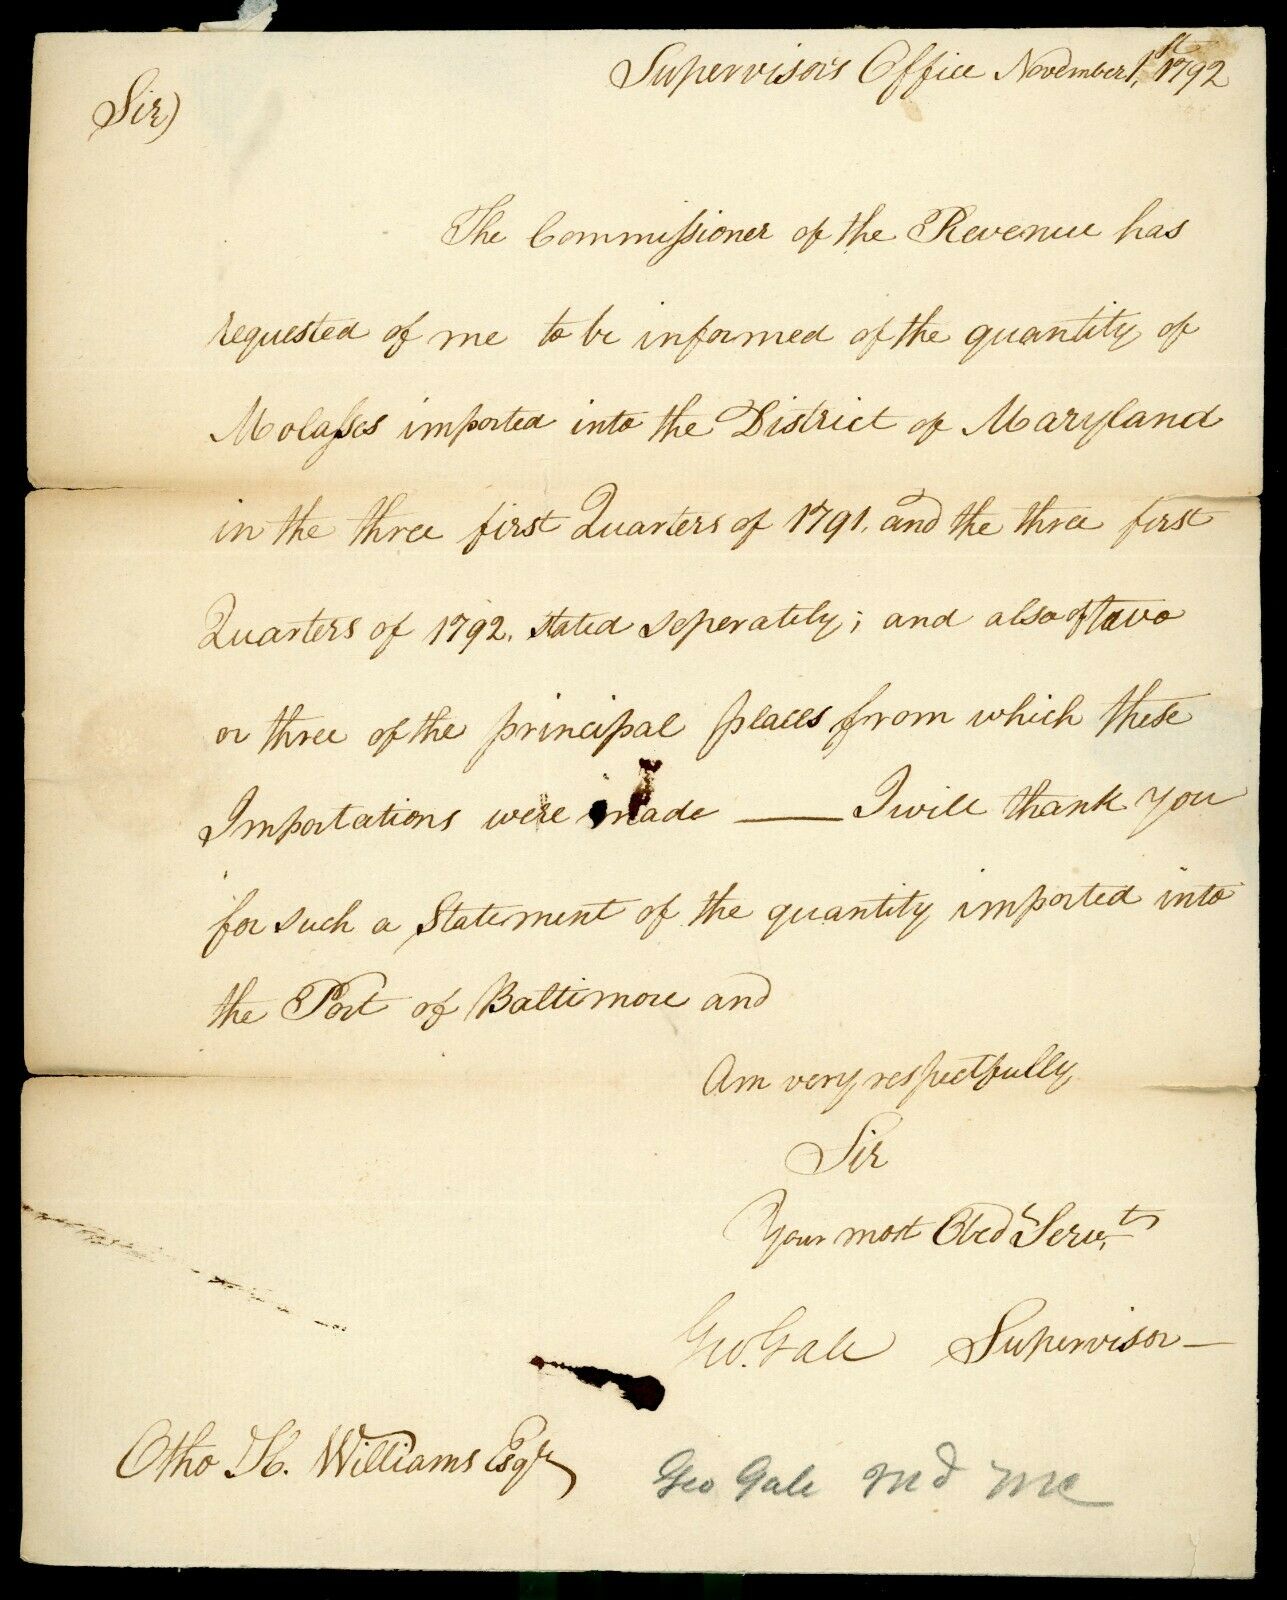 Supervisors Office November 1st, 1792
Sir)
The Commissioner of the Revenue has
requested of me to be informed of the quantity of
Molasses imported into the District of Maryland
in the three first Quarters of 1791. and the three first
Quarters of 1792. stated seperately; and also of two
or three of the principal places from which these
Importations were made — I will thank you
for such a Statement of the quantity imported into
the Port of Baltimore and
Am very respectfully
Sir
Your most Obed Servt
Geo. Gale Supervisor —
Otho H. Williams Esqr
Geo Gale Md MC